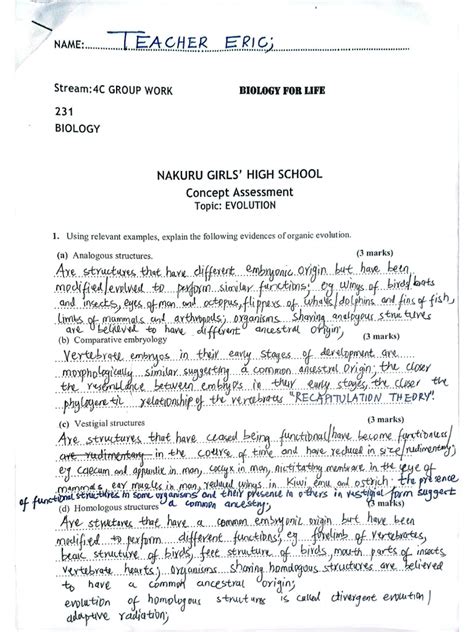 NAME: TEACHER ERIC;
Stream:4C GROUP WORK BIOLOGY FOR LIFE
231
BIOLOGY
NAKURU GIRLS' HIGH SCHOOL
Concept Assessment
Topic: EVOLUTION
1. Using relevant examples, explain the following evidences of organic evolution.
(a) Analogous structures. (3 marks)
Are structures that have different embryonic origin but have been
modified/evolved to perform similar functions; eg wings of birds/bats
and insects, eyes of man and octopus, flippers of whales/dolphins and fins of fish,
limbs of mammals and arthropods; organisms sharing analogous structures
are believed to have different ancestral origin;
(b) Comparative embryology (3 marks)
Vertebrate embryos in their early stages of development are
morphologically similar suggesting a common ancestral origin; the closer
the resemblance between embryos in their early stages, the closer the
phylogenetic relationship of the vertebrates "RECAPITULATION THEORY!
(c) Vestigial structures (3 marks)
Are structures that have ceased being functional/have become functionless/
are rudimentary in the course of time and have reduced in size/rudimentary;
eg caecum and appendix in man, coccyx in man, nictitating membrane in the eye of
mammals, ear muscles in man, reduced wings in Kiwi, emu and ostrich; the presence
of functional structures in some organisms and their presence in others in vestigial form suggest
a common ancestry;
(d) Homologous structures (3 marks)
Are structures that have a common embryonic origin but have been
modified to perform different functions; eg forelimb of vertebrates,
beak structure of birds, feet structure of birds, mouth parts of insects
vertebrate hearts; organisms sharing homologous structures are believed
to have a common ancestral origin;
evolution of homologous structures is called divergent evolution/
adaptive radiation;